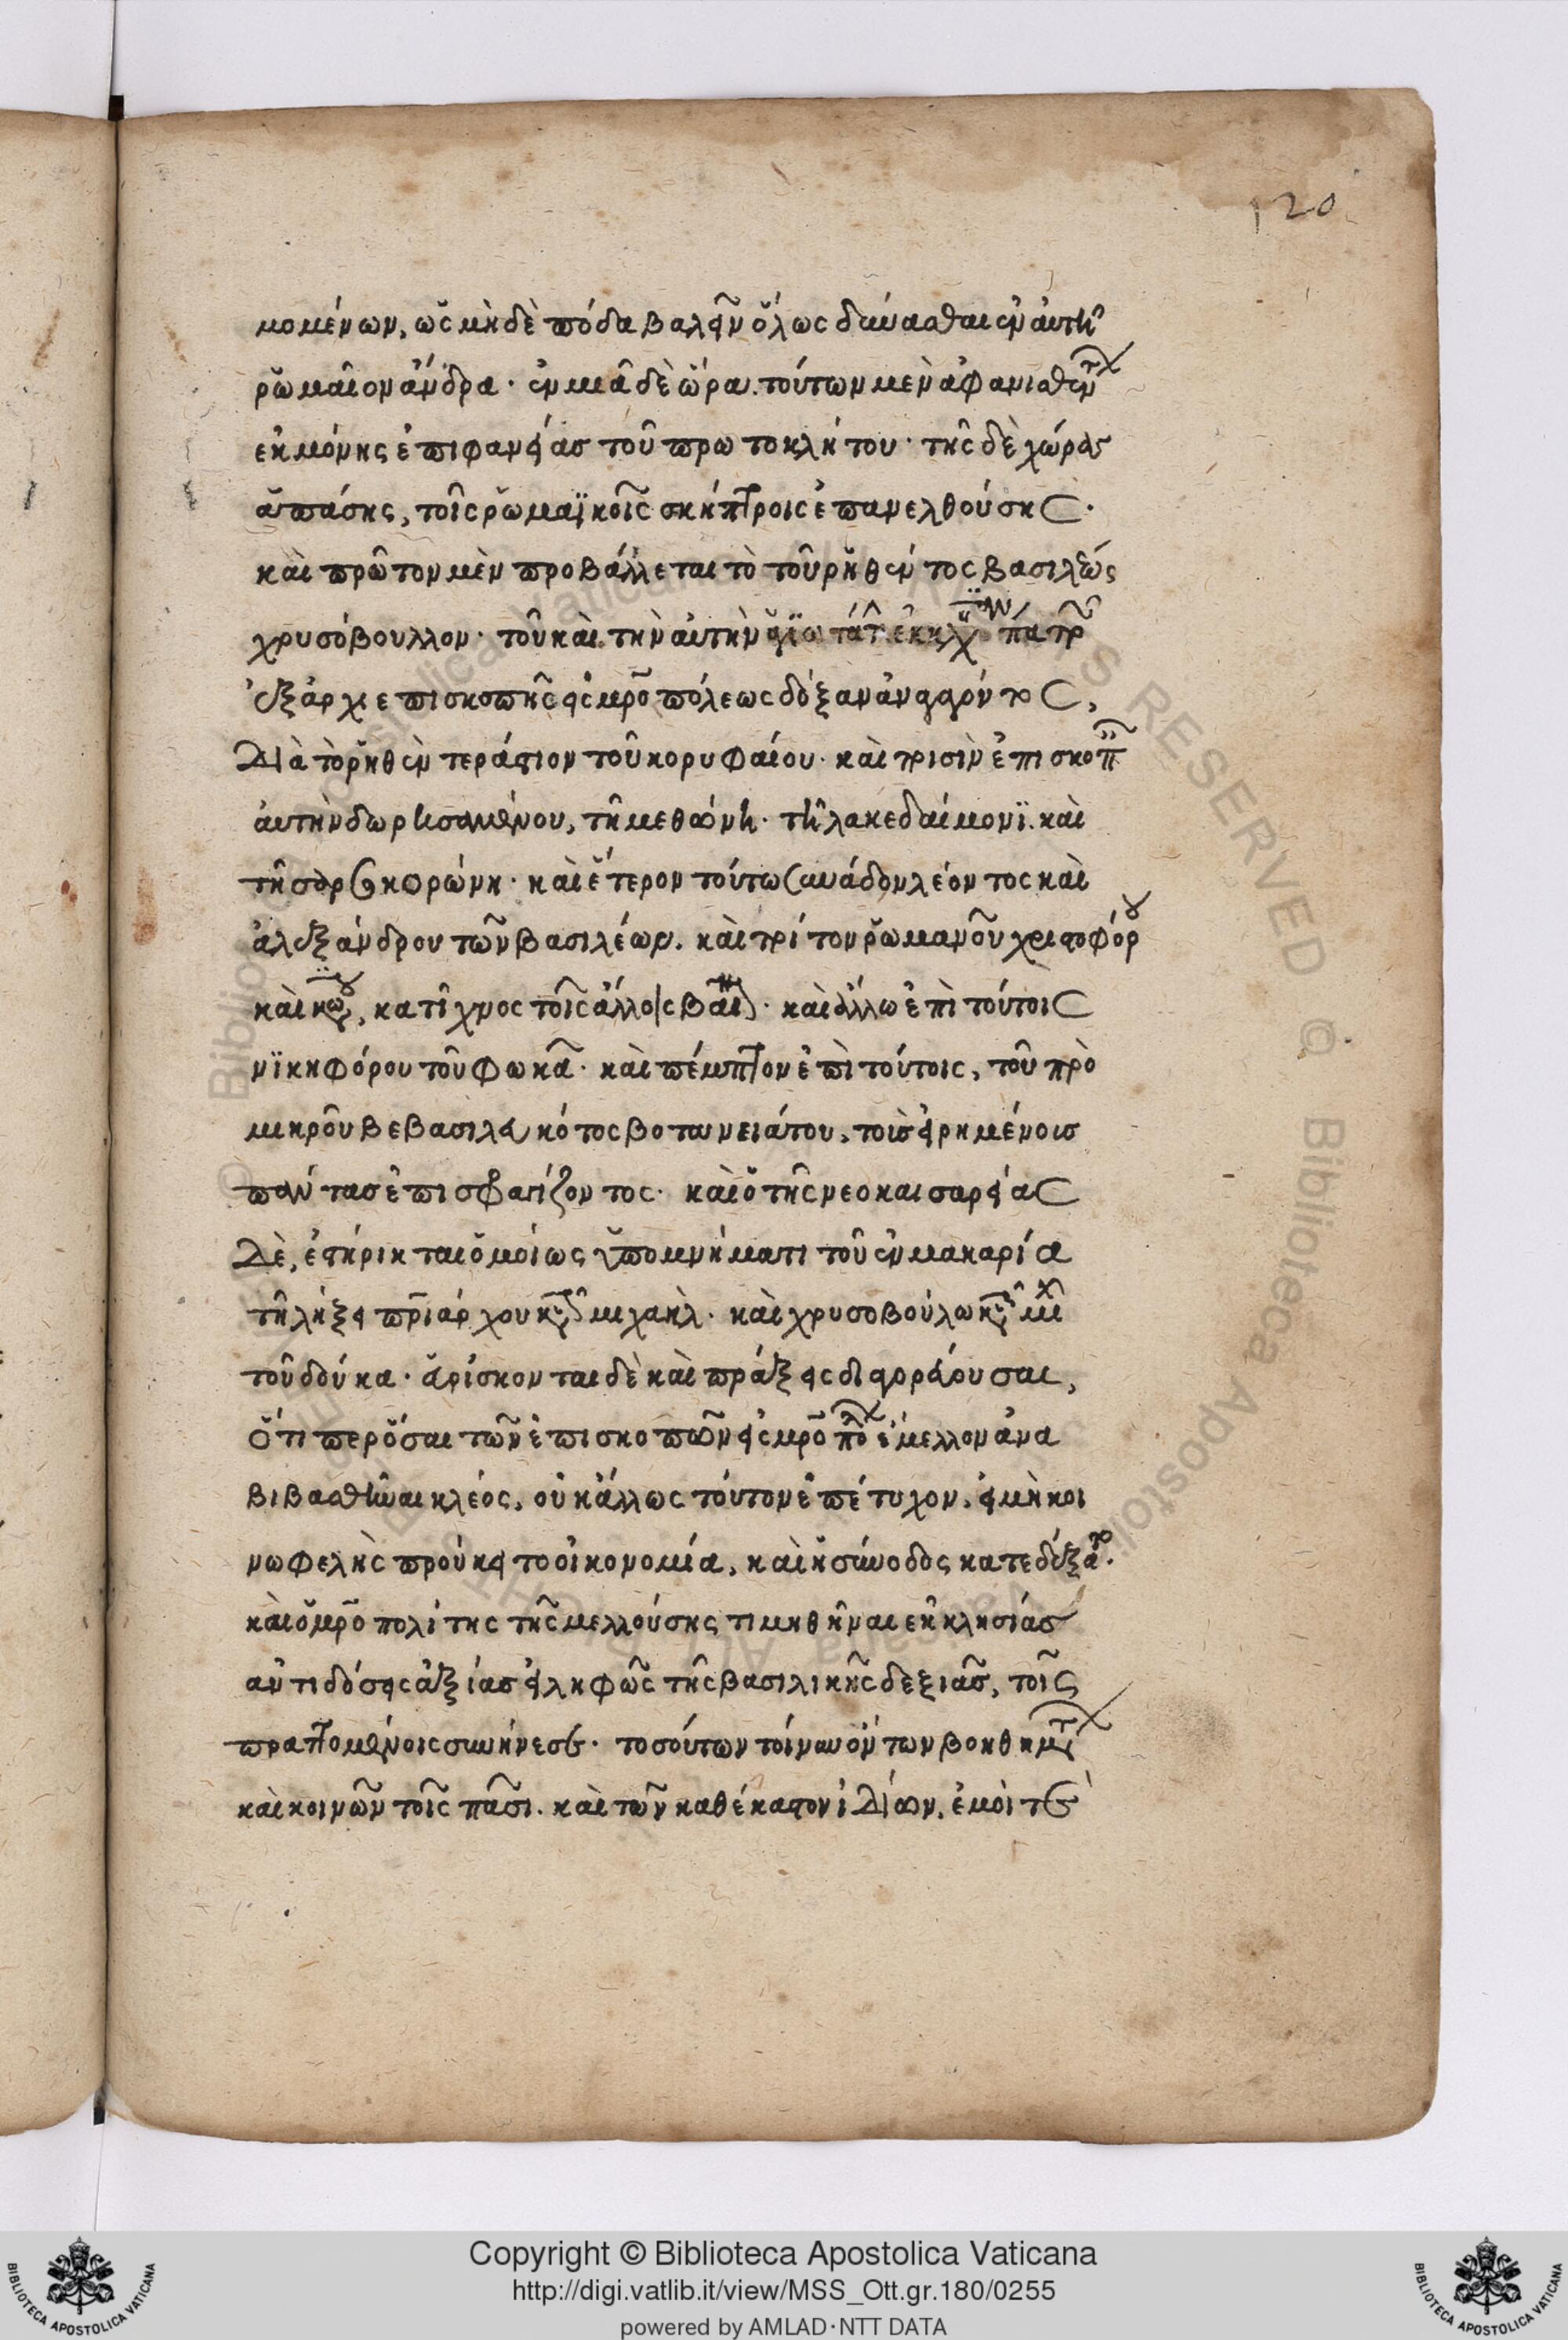 120
μομένων, ὡς μὴ δὲ πόδα βαλεῖν ὅλως δύνασθαι ἐν αὐτῆ
ῥωμαῖον ἄνδρα· ἐν μιᾶ δὲ ὥρα. τούτων μὲν ἀφανισθέντ
ἐκ μόνης ἐπιφανείας τοῦ πρωτοκλήτου· τῆς δὲ χώρας
ἁπάσης, τοῖς ῥωμαϊκοῖς σκήπτροις ἐπανελθούσης·
καὶ πρῶτον μὲν προβάλλεται τὸ τοῦ ῥηθέντος βασιλέως
χρυσόβουλλον· τοῦ καὶ τὴν αὐτὴν πατρ
ἐξ ἀρχιεπισκοπῆς εἰς μρο̄πόλεως δόξαν ἀναγαγόντος,
Διὰ τὸ ῥηθὲν τεράστιον τοῦ κορυφαίου· καὶ τρισὶν ἐπισκοπ
αὐτὴν δωρησαμένου, τῆ μεθώνη· τῆ λακεδαίμονϊ. καὶ
τῆ κορώνη· καὶ ἕτερον τούτω συνάδον λέοντος καὶ
ἀλεξάνδρου τῶν βασιλέων. καὶ τρίτον ῥωμανοῦ χριστοφόρου
καὶ κων, κατίχνος τοῖς ἄλλοις βα· καὶ ἄλλω ἐπὶ τούτοις
νϊκηφόρου τοῦ φωκᾶ· καὶ πέμπτον ἐπὶ τούτοις, τοῦ πρὸ
μικροῦ βεβασιλευκότος βοτανειάτου, τοῖς εἰρημένοις
πάντας ἐπισφραγίζοντος· καὶ ὁ τῆς νεοκαισαρείας
Δὲ, ἐστήρικται ὁμοίως ὑπομνήματι τοῦ ἐν μακαρία
τῆ λήξει πρ̄ιάρχου κυρ μιχαὴλ· καὶ χρυσοβούλω κυρ μιχ
τοῦ δούκα· εὑρίσκονται δὲ καὶ πράξεις διαγορεύουσαι,
Ὅτι περ ὅσαι τῶν ἐπισκοπῶν εἰς μρο̄πολ ἔμελλον ἀνα
βιβασθῆναι κλέος, οὐκ ἄλλως τούτον ἐπέτυχον, εἰ μὴ κοι
νωφελὴς προύκειτο οἰκονομία, καὶ ἡ σύνοδος κατεδέξατο.
καὶ ὁ μρο̄πολίτης τῆς μελλούσης τιμηθῆναι ἐκκλησίας
ἀντιδόσεις ἀξίας εἰληφὼς τῆς βασιλικῆς δεξιᾶς, τοῖς
πραττομένοις συνήνεσε· τοσούτων τοίνυν ὄντων βοηθημτ
καὶ κοινῶν τοῖς πᾶσι. καὶ τῶν καθέκαστον ἰδίων, ἐμοί τε
Copyright © Biblioteca Apostolica Vaticana
http://digi.vatlib.it/view/MSS_Ott.gr.180/0255
powered by AMLAD·NTT DATA
BIBLIOTECA APOSTOLICA VATICANA
BIBLIOTECA APOSTOLICA VATICANA